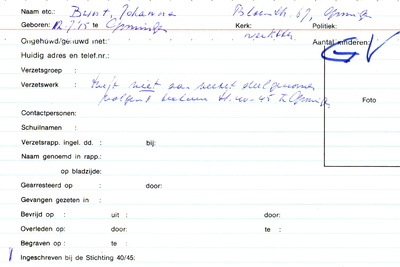 Naam etc.: Bunt, Johanna Bloemstr. 67, Groningen
Geboren: 12.7.15 te Groningen Kerk: Politiek:
Ongehuwd/gehuwd met: Aantal kinderen:
GV
Huidig adres en telef.nr.:
Verzetsgroep :
Verzetswerk : Heeft niet aan verzet deelgenomen
40-45 te Groningen
Foto
Contactpersonen:
Schuilnaam :
Verzetsrapp. ingel. dd. : bij:
Naam genoemd in rapp.:
op bladzijde:
Gearresteerd op : door:
Gevangen gezeten in :
Bevrijd op : uit : door:
Overleden op: door: te :
Begraven op : te :
Ingeschreven bij de Stichting 40/45: